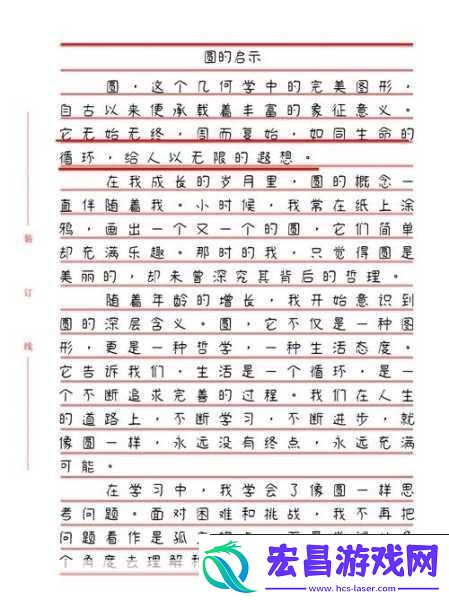 圆的启示
圆，这个几何学中的完美图形，
自古以来便承载着丰富的象征意义。
它无始无终，周而复始，如同生命的
循环，给人以无限的遐想。
在我成长的岁月里，圆的概念一
直伴随着我。小时候，我常在纸上涂
鸦，画出一个又一个的圆，它们简单
却充满乐趣。那时的我，只觉得圆是
美丽的，却未曾深究其背后的哲理。
随着年龄的增长，我开始意识到
圆的深层含义。圆，它不仅是一种图
形，更是一种哲学，一种生活态度。
它告诉我们，生活是一个循环，是一
个不断追求完善的过程。我们在人生
的道路上，不断学习，不断进步，就
像圆一样，永远没有终点，永远充满
可能。
在学习中，我学会了像圆一样思
考问题。面对困难和挑战，我不再把
问题看作是孤
个角度去理解
装
订
线
宏昌游戏网
www.hcs-laser.com